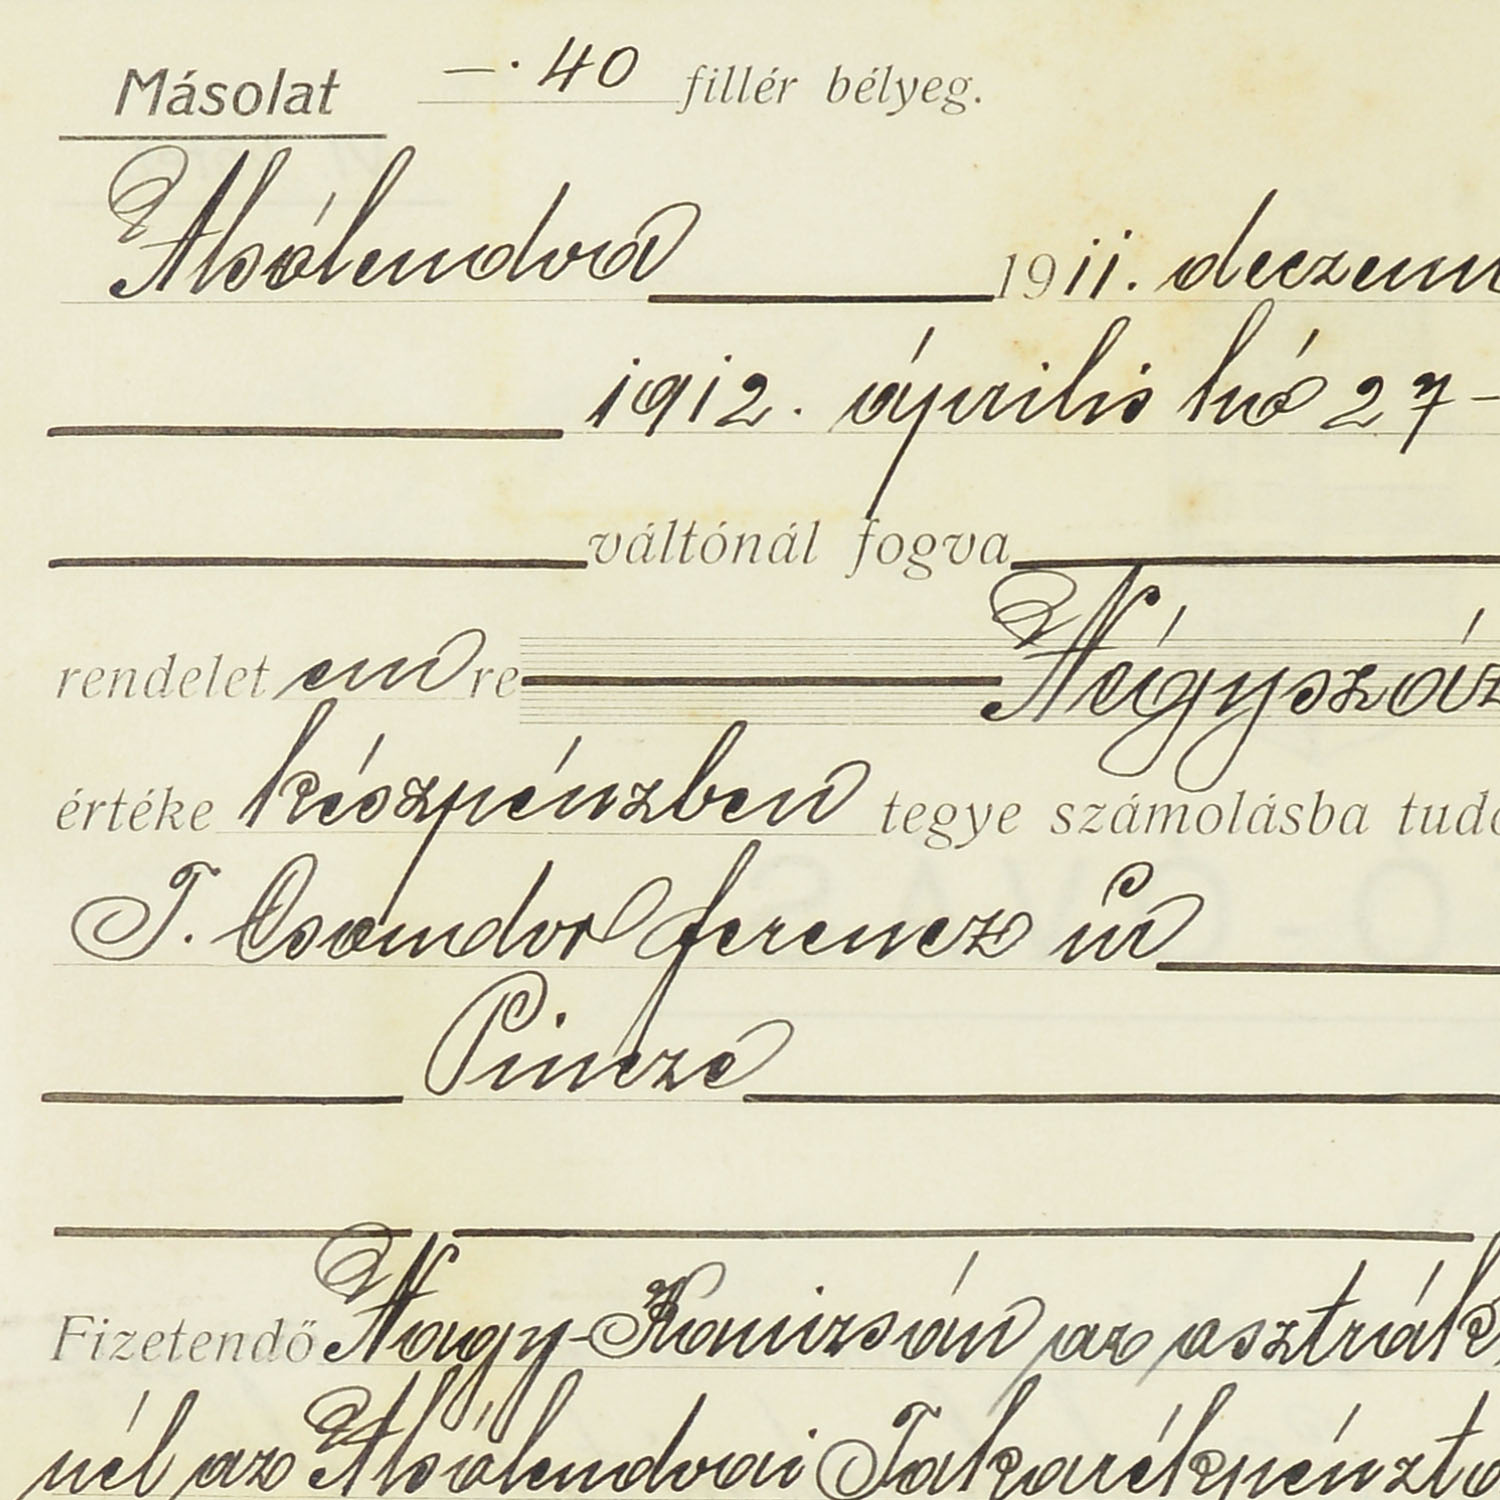 Másolat —·40 fillér bélyeg.
Alsólendva 1911. deczem
1912. április hó 27-
váltónál fogva
rendelet em re Négyszáz
értéke készpénzben tegye számolásba tudó
T. Csondor Ferencz úr
Pincze
Fizetendő Nagy-Kanizsán az osztrák
nél az Alsólendvai Takarékpénztá